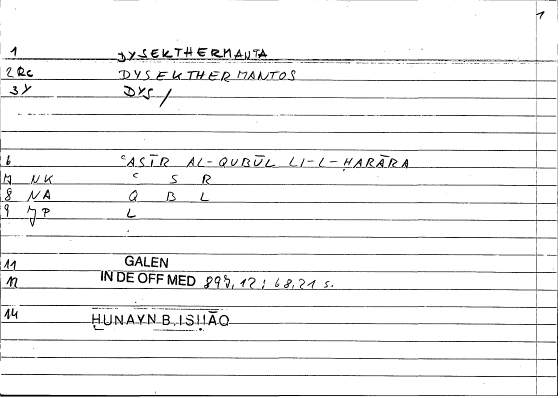 1
1 DYSEKTHERMANTA
2 RC DYSEKTHERMANTOS
3 Y DYS/
6 ʿASĪR AL-QUBŪL LI-L-ḤARĀRA
7 NK ʿ S R
8 NA Q B L
9 JP L
11 GALEN
12 IN DE OFF MED 897,12 : 68,21 s.
14 ḤUNAYN B. ISḤĀQ